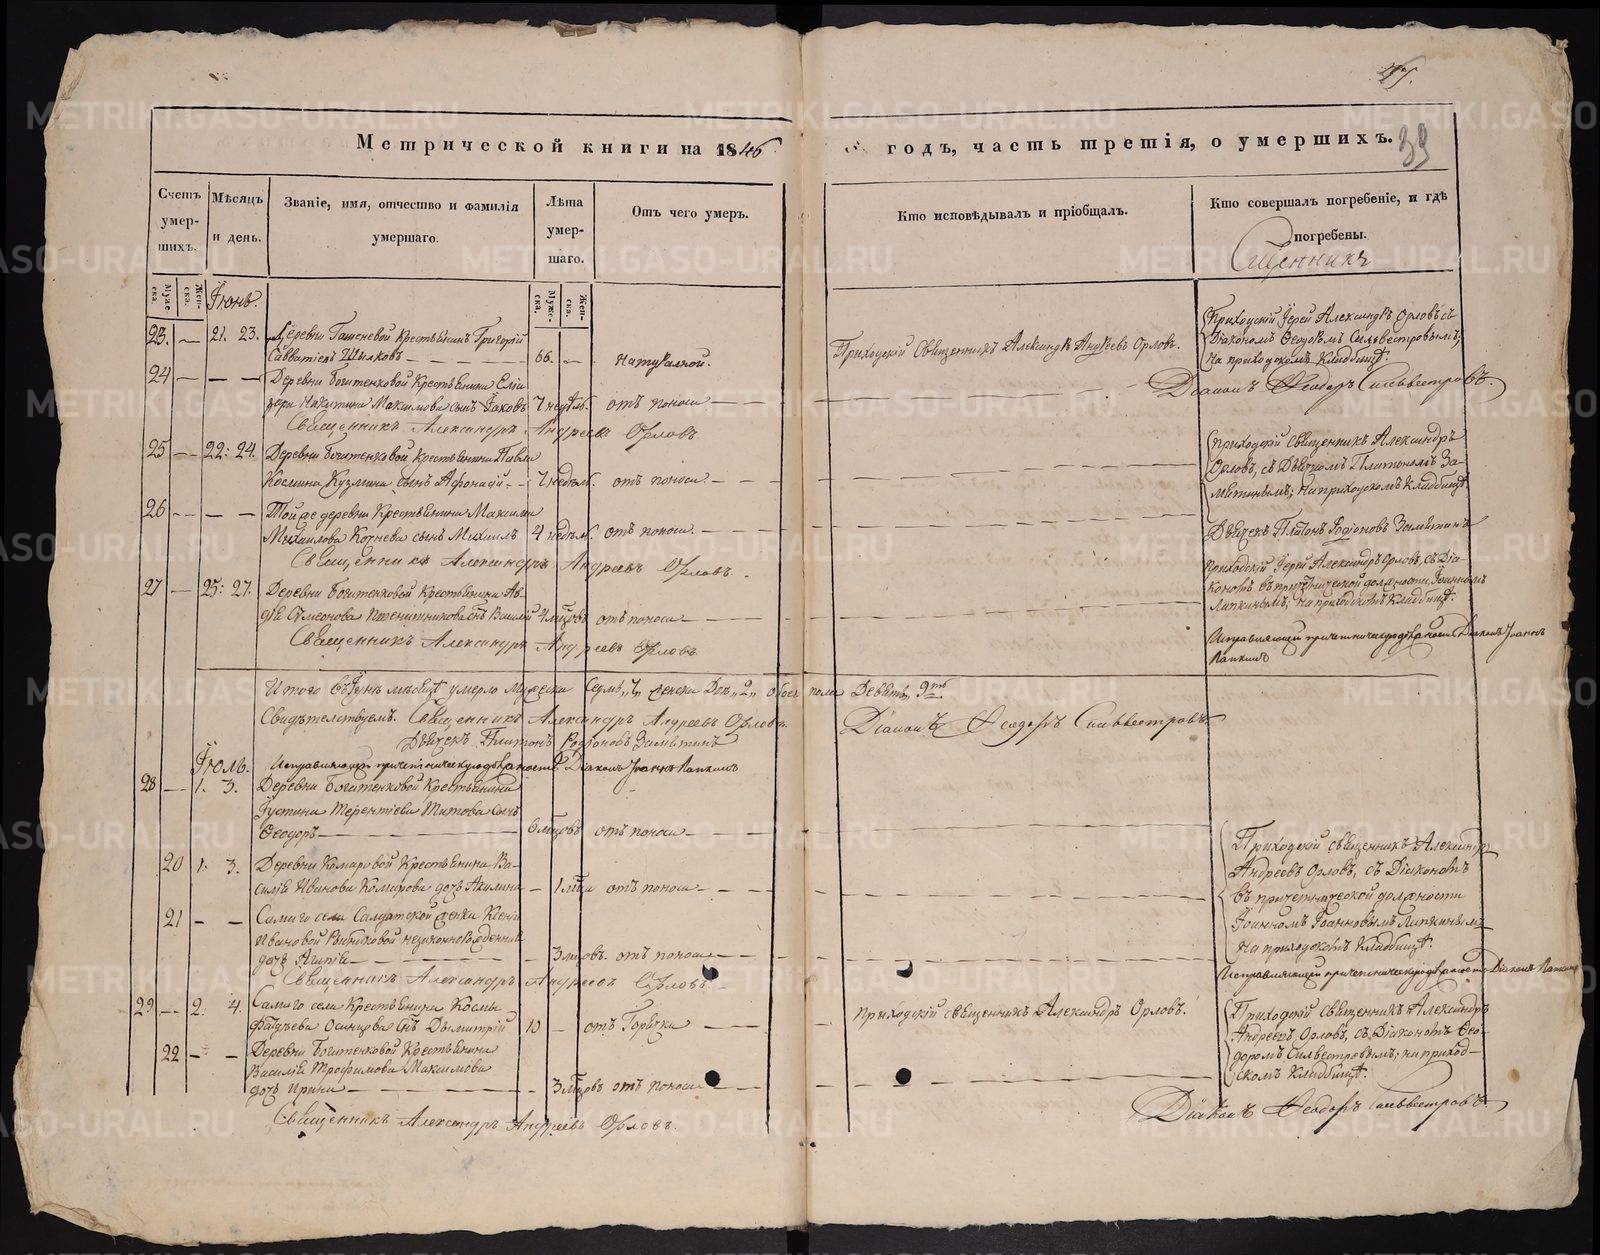 Метрической книги на 1846 годъ, часть третія, о умершихъ.
39
Счетъ умер-шихъ.
Мѣсяцъ и день.
Званіе, имя, отчество и фамилія умершаго.
Лѣта умер-шаго.
Отъ чего умеръ.
Кто исповѣдывалъ и пріобщалъ.
Кто совершалъ погребеніе, и гдѣ погребены.
Священникъ
Муже-ска.
Жен-ска.
Іюнь.
Муже-ска.
Жен-ска.
23. — 21. 23. Деревни Гашеневой Крестьянинъ Григорій
Савватіевъ Шыляковъ — 66. — Натуральной.
Приходскій Священникъ Александръ Андреевъ Орловъ.
Приходскій Іерей Александръ Орловъ съ
Діакономъ Ѳеодоромъ Сильвестровымъ;
на приходскомъ Кладбищѣ.
24 — — — Деревни Богатенковой Крестьянина Еліа-
зара Никитина Максимова сынъ Іаковъ 7 недѣль. отъ поноса
Діаконъ Ѳеодоръ Сильвестровъ.
Священникъ Александръ Андреевъ Орловъ
25 — 22: 24. Деревни Богатенковой Крестьянина Павла
Космина Кузмина сынъ Афонасій — 7 недѣль. отъ поноса
Приходскій Священникъ Александръ
Орловъ, съ Дьячкомъ Платономъ За-
мятинымъ; на приходскомъ Кладбищѣ
26 — — — Той же деревни Крестьянина Максима
Михайлова Котнева сынъ Михаилъ 4 недѣль. отъ поноса.
Дьячекъ Платонъ Родіоновъ Замятинъ
Священникъ Александръ Андреевъ Орловъ.
27 — 25: 27. Деревни Богатенковой Крестьянина Ав-
дія Сѵмеонова Пшенишникова сынъ Василій 4 мѣсцовъ отъ поноса
Приходскій Іерей Александръ Орловъ, съ Діа-
кономъ въ причетнической должности, Іоанномъ
Лапкинымъ, на приходскомъ Кладбищѣ.
Священникъ Александръ Андреевъ Орловъ
Исправляющій причетническую должность Діаконъ Іоаннъ
Лапкинъ
Итого въ Іюнѣ мѣсяцѣ умерло мужеска Седмь „7„ женска Два „2„ обоего пола Девять 9ть
Свидѣтельствуемъ. Священникъ Александръ Андреевъ Орловъ. Діаконъ Ѳеодоръ Сильвестровъ
Дьячекъ Платонъ Родіоновъ Замятинъ
Исправляющій причетническую должность Діаконъ Іоаннъ Лапкинъ
Іюль.
28 — 1. 3. Деревни Богатенковой Крестьянина
Іустина Терентіева Титова сынъ
Ѳеодоръ — 6 мѣсцовъ отъ поноса
20 1. 3. Деревни Комаровой Крестьянина Ва-
силія Иванова Комарова дочь Акилина — 1 мѣсца отъ поноса
21 — — Самаго села Салдатской женки Ксеніи
Ивановой Рыбниковой незаконнорожденная
дочь Агапія — 3 мѣсцовъ. отъ поноса
Приходскій священникъ Александръ
Андреевъ Орловъ, съ Діакономъ
въ причетнической должности
Іоанномъ Іоанновымъ Лапкинымъ
на приходскомъ Кладбищѣ.
Исправляющій причетническую должность Діаконъ Лапкинъ
Священникъ Александръ Андреевъ Орловъ
29 — 2. 4. Самаго села Крестьянина Космы
Фадѣева Осинцова сынъ Дымитрій 10 — отъ Горячки
Приходскій священникъ Александръ Орловъ.
22 — — Деревни Богатенковой Крестьянина
Василія Трофимова Максимова
дочь Ирина — 3 мѣсцовъ отъ поноса
Приходскій Священникъ Александръ
Андреевъ Орловъ, съ Діакономъ Ѳео-
доромъ Сильвестровымъ; на приход-
скомъ Кладбищѣ.
Священникъ Александръ Андреевъ Орловъ.
Діаконъ Ѳеодоръ Сильвестровъ.
METRIKI.GASO-URAL.RU